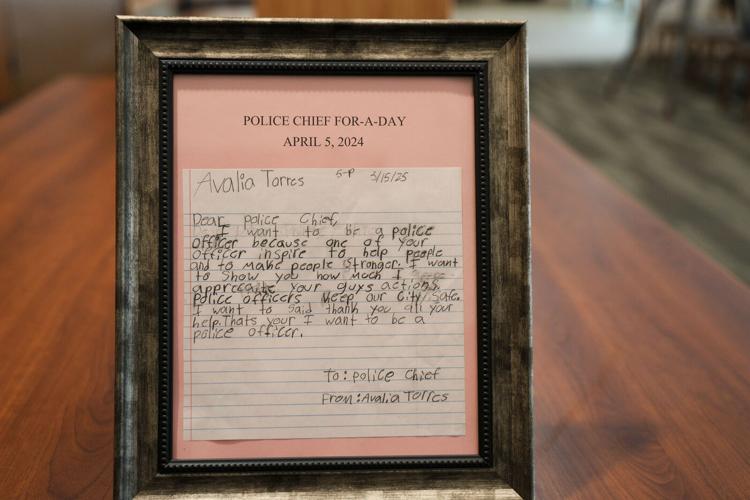 POLICE CHIEF FOR-A-DAY
APRIL 5, 2024
Avalia Torres 5-P 3/15/25
Dear police Chief,
I want to be a police
officer because one of your
officer inspire to help people
and to make people stronger. I want
to show you how much I
apprecaite your guys actions.
police officers keep our City safe.
I want to said thank you all your
help. Thats your I want to be a
police officer.
To: police chief
From: Avalia Torres